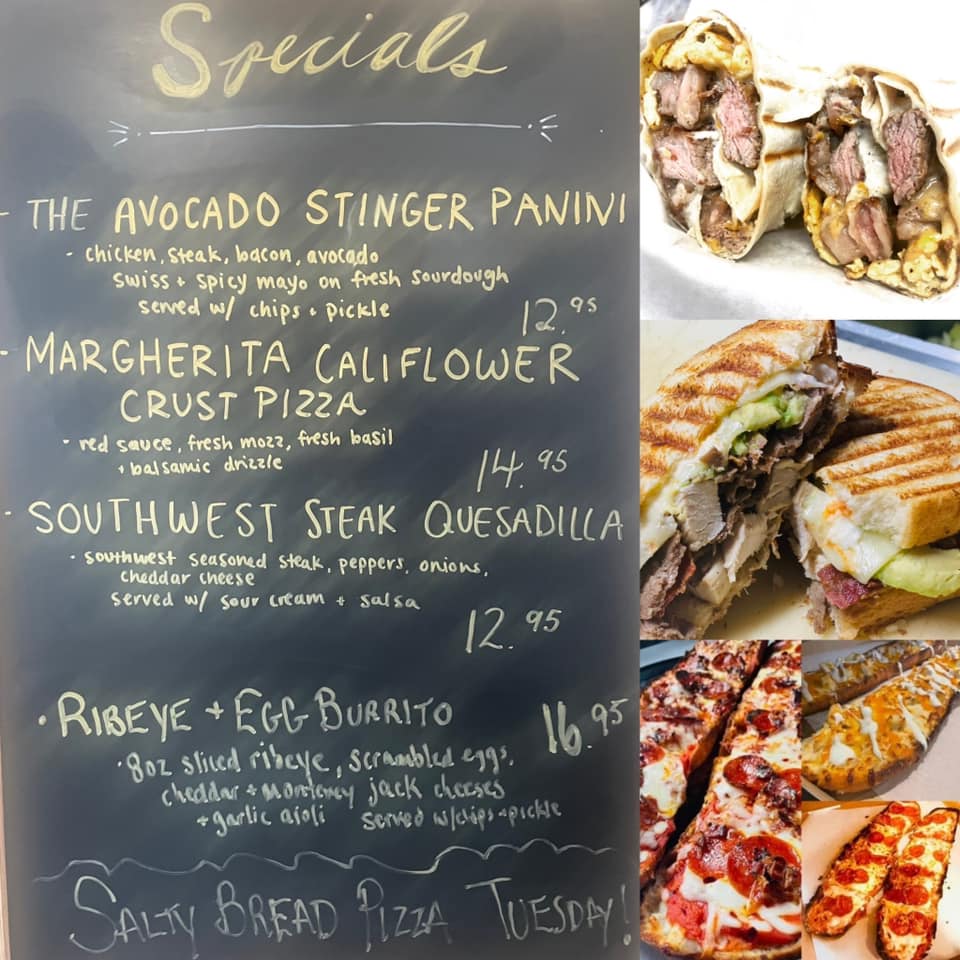 Specials
- THE AVOCADO STINGER PANINI
• chicken, steak, bacon, avocado
swiss + spicy mayo on fresh sourdough
served w/ chips + pickle
12.95
- MARGHERITA CALIFLOWER
CRUST PIZZA
• red sauce, fresh mozz, fresh basil
+ balsamic drizzle
14.95
- SOUTHWEST STEAK QUESADILLA
• southwest seasoned steak, peppers, onions,
cheddar cheese
served w/ sour cream + salsa
12.95
• RIBEYE + EGG BURRITO 16.95
• 8oz sliced ribeye, scrambled eggs,
cheddar + monterey jack cheeses
+ garlic aioli served w/chips + pickle
SALTY BREAD PIZZA TUESDAY!